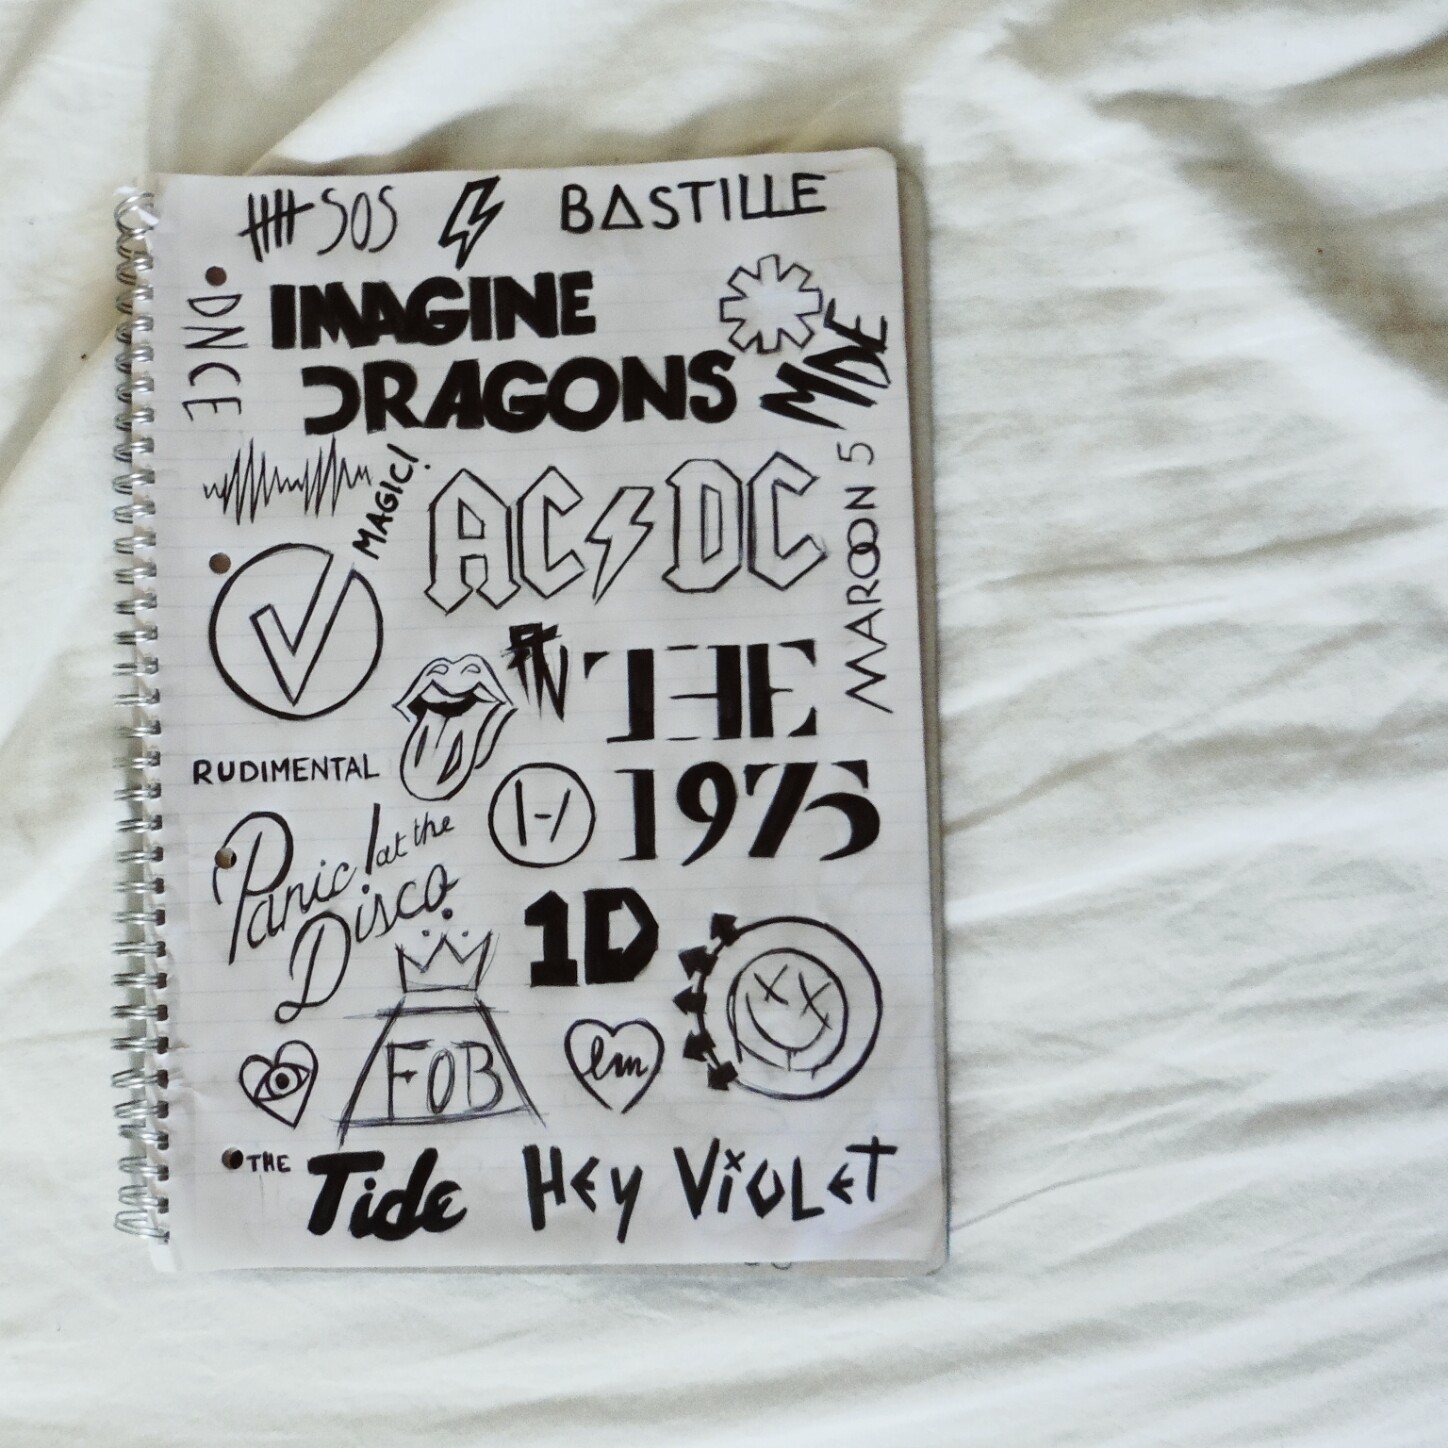 SOS
BASTILLE
DNCE
IMAGINE
DRAGONS
MDE
MAGIC!
AC DC
MAROON 5
THE
1975
RUDIMENTAL
Panic! at the
Disco
1D
FOB
em
THE Tide
HEY VIOLET